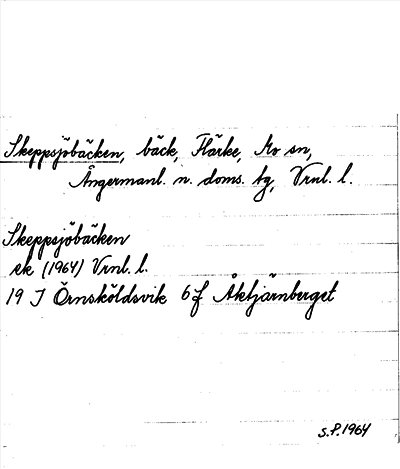 Skeppsjöbäcken, bäck, Flärke, Mo sn,
Ångermanl. n. doms. tg, Vrnl. l.
Skeppsjöbäcken
ek (1964) Vrnl. l.
19 J Örnsköldsvik 6f Åktjärnberget
S.P. 1964